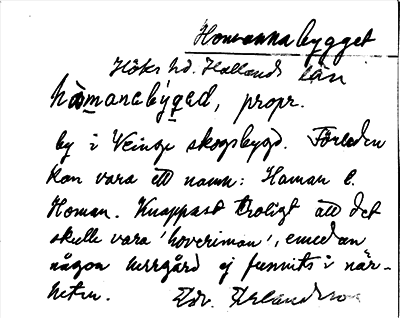 Homannabygget
Höks hd. Hallands län
håmanabýgəd, propr.
by i Veinge skogsbygd. Förleden
kan vara ett namn: Haman l.
Homan. Knappast troligt att det
skulle vara 'hoveriman', emedan
någon herrgård ej funnits i när-
heten. Edv. Erlandson